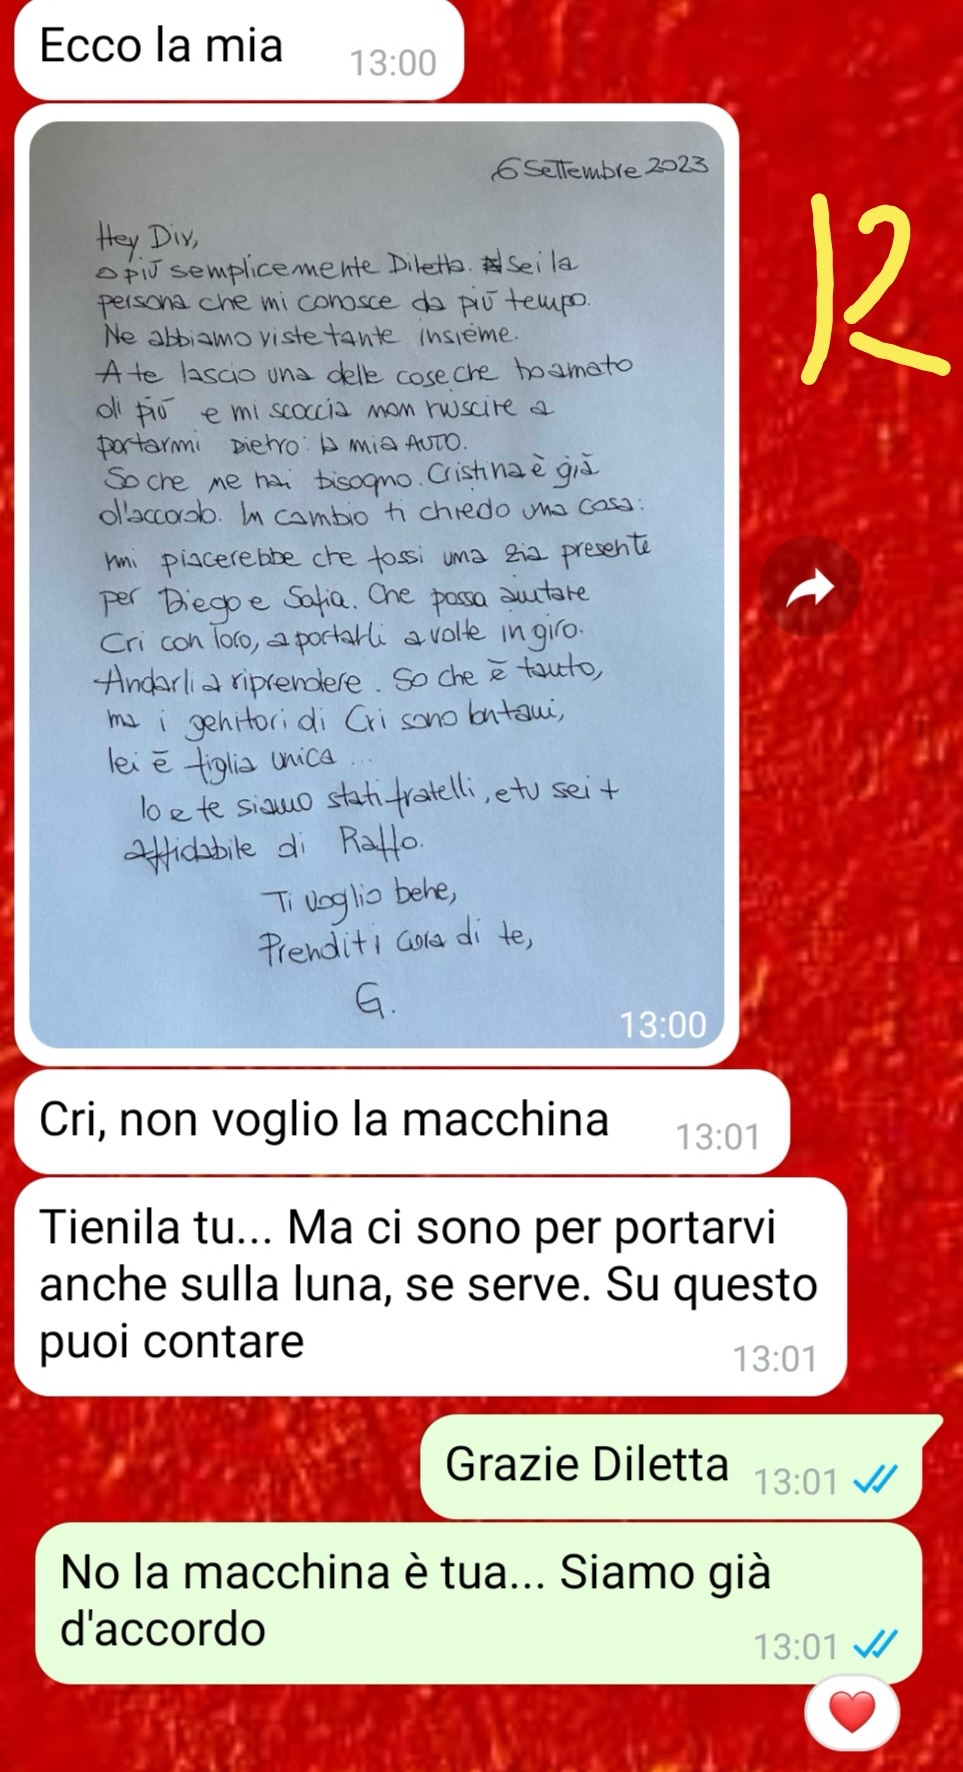 Ecco la mia 13:00
6 Settembre 2023
12
Hey Div,
o più semplicemente Diletta. sei la
persona che mi conosce da più tempo.
Ne abbiamo viste tante insieme.
A te lascio una delle cose che ho amato
di più e mi scoccia non riuscire a
portarmi dietro: la mia AUTO.
So che ne hai bisogno. Cristina è già
d'accordo. In cambio ti chiedo una cosa:
mi piacerebbe che fossi una zia presente
per Diego e Sofia. Che possa aiutare
Cri con loro, a portarli a volte in giro.
Andarli a riprendere. So che è tanto,
ma i genitori di Cri sono lontani,
lei è figlia unica ...
Io e te siamo stati fratelli, e tu sei +
affidabile di Raffo.
Ti voglio bene,
Prenditi cura di te,
G.
13:00
Cri, non voglio la macchina 13:01
Tienila tu... Ma ci sono per portarvi
anche sulla luna, se serve. Su questo
puoi contare 13:01
Grazie Diletta 13:01
No la macchina è tua... Siamo già
d'accordo 13:01